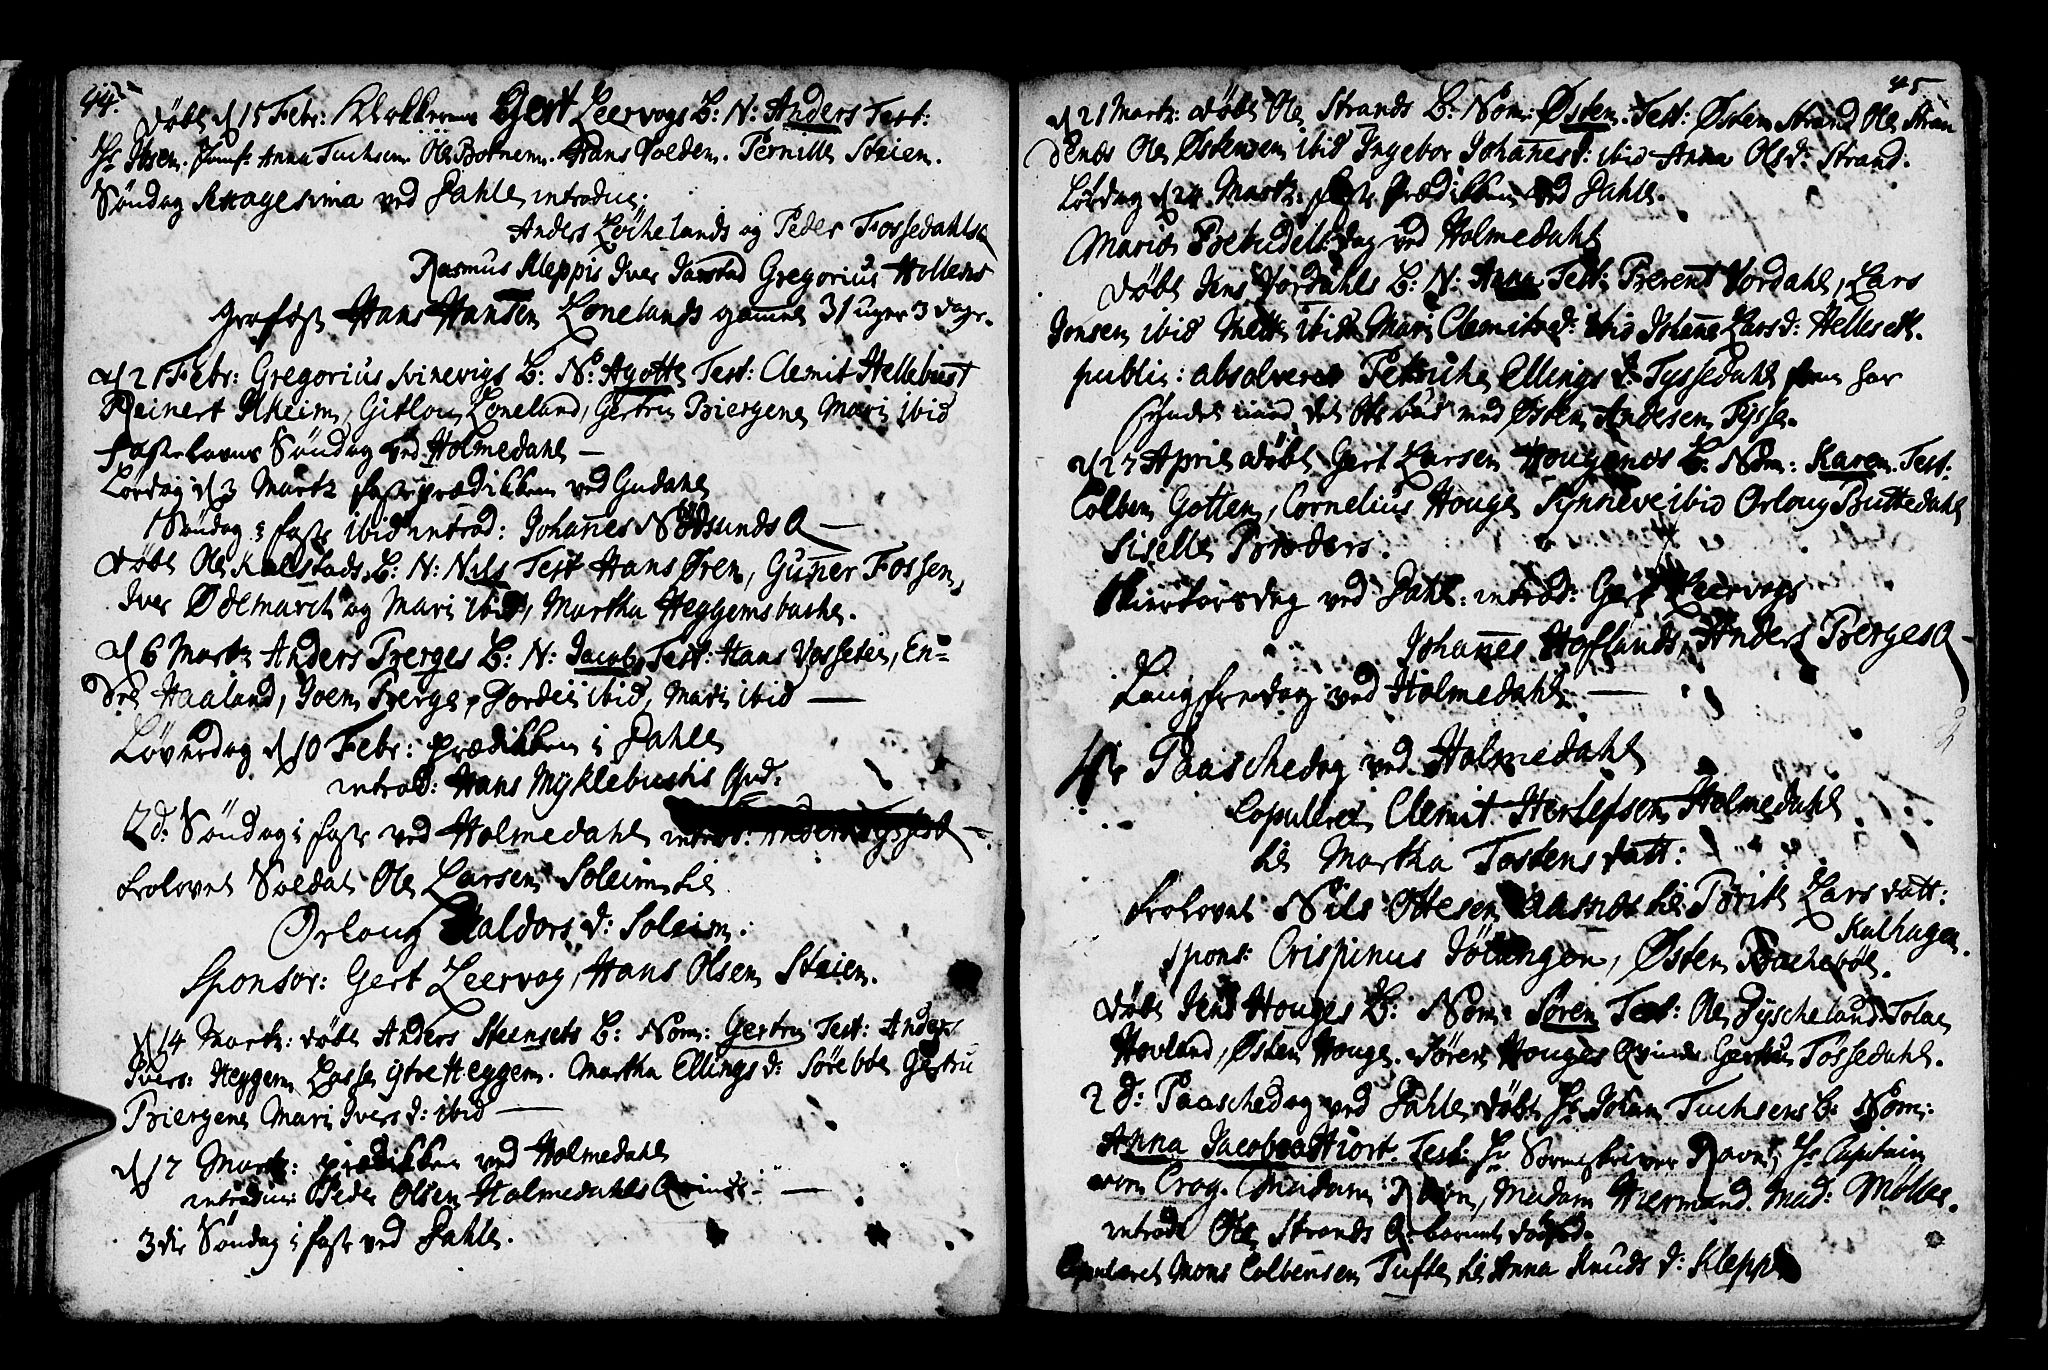 44.
Døbt d 15 Febr: Klokkerens Gert Leervogs B: N: Anders Test:
Hr Ibsen. Jomf: Anna Tuchsen. Ole Bornem. Hans Voeden. Pernille Steien.
Søndag Sexagesima ved Dahle introduc:
Anders Løchelands og Peder Fossedahls Q
Rasmus Kleppis Iver Jarstad Gregorius Hollens
Grafæst Hans Hansen Lonelands gammel 31 uger 3 dage.
d 21 Febr: Gregorius Svinevigs B: N: Agotte Test: Clemit Hellebust
Reinert Ilheim, Gitlou Loneland, Gertru Biergene Mari ibid
Fastelavns Søndag ved Holmedahl —
Lørdag d 3 Martz faste prædikken ved Gudahl
1 Søndag i faste ibid introd: Johannes Nødsunds Q —
Døbt Ole Kalstads B: N: Nils Test Hans Øren, Guner Fossen,
Iver Ødemarch og Mari ibid, Martha Heggemsbache.
d 6 Martz Anders Berges B: N: Jacob Test: Hans Vasseten, En=
dre Haaland, Joen Berge, Jordeii ibid, Mari ibid —
Løverdag d 10 Febr: prædikken i Dahle
introd: Hans Myklebustis Qvd.
2d: Søndag i faste ved Holmedahl introd:
trolovet Soldat Ole Larsen Soleim til
Orloug Haldors d: Soleim.
Sponsor: Gert Leervog, Hans Olsen Steien.
d 14 Martz: døbt Anders Steensets B: Nom: Gertru Test: Anders
Ivers: Heggem Lasse ystre Heggem. Martha Ellings d: Sørebøe Gertru
Biergene Mari Ivers d: ibid —
d 17 Martz: prædikken ved Holmedahl
introduc Peder Olsen Holmedahls Qvinde. —
3die Søndag i faste ved Dahle.
45
d 21 Martz: døbt Ole Strands B: Nom: Østen. Test: Østen Strand Ole Stran
denes Ole Østensen ibid Ingebor Johanes d: ibid Anna Ols d: Strand.
Lørdag d 24 Martz: faste Prædikken ved Dahle.
Mariæ Bebudel: dag ved Holmedahl
Døbt Jens Vordahls B: N: Anna Test: Berent Vordahl, Lars
Jonsen ibid Mette ibid Mari Clemits d: ibid Johane Lars d: Helleseth.
public: absolveret Petriche Ellings d: Tyssedahl som har
syndet imod det 6te bud med Østen Andersen Tysse.
d 27 April døbt Gert Larsen Hougenes B: Nom: Karen Test:
Colben Gotten, Cornelius Houge Synneve ibid Orloug Buttedahl
Siselle Brødors.
Skiertorsdag ved Dahl: introd: Gert Leervogs
Johannes Hoflands, Anders Berges Q
Langfredag ved Holmedahl. —
1ste Paaschedag ved Holmedahl
Copuleret Clemit Herlefsen Holmedahl
til Martha Tostens datt:
trolovet Nils Ottesen Aasnes til Brite Lars datt:
Kalhagen.
spons: Crispinus Jølangen, Østen Bachebøe.
Døbt Jens Houges B: Nom: Søren Test: Ole Dyscheland. Tolac
Hovland, Østen Houge. Sören Houges Qvinde Gertru Tossedahl.
2d: Paaschedag ved Dahle døbt Hr Johan Tuchsens B: Nom:
Anna Jacobea Hiort. Test: Hr Sorenskriver Ravn, Hr Capitain
von Crog. Madam Ravn, Madam Hiermand. Mad: Møller.
introd: Ole Strands Q: barnet døbt d.
Copuleret Mons Colbensen Tufte til Anna Knuds d: Klepp